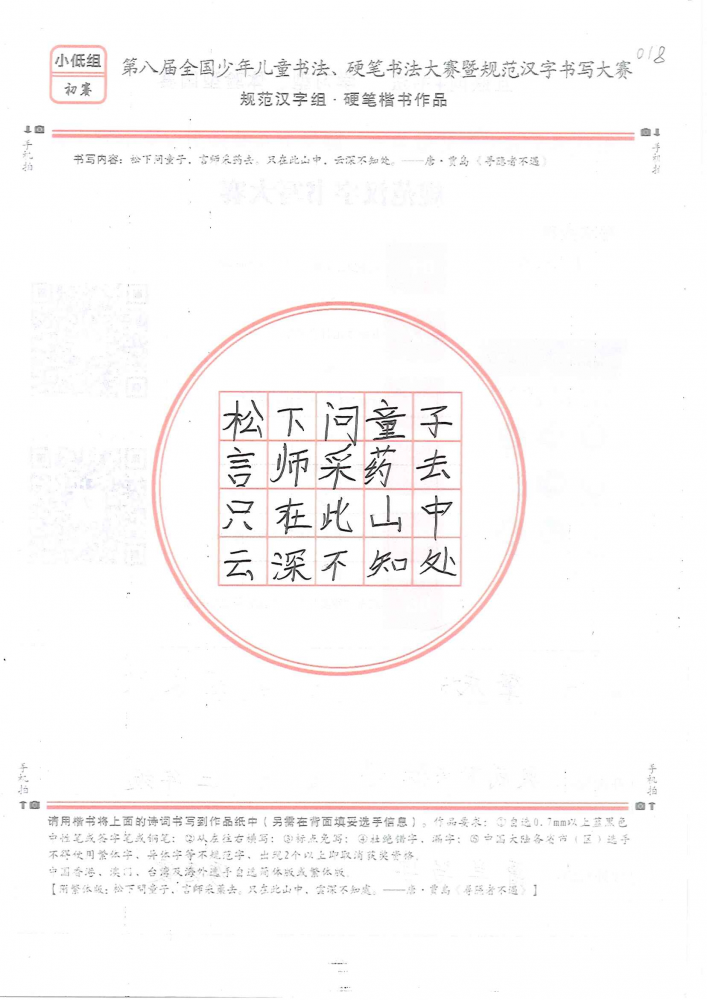 018
小低组
初赛
第八届全国少年儿童书法、硬笔书法大赛暨规范汉字书写大赛
规范汉字组·硬笔楷书作品
手机拍
手机拍
书写内容：松下问童子，言师采药去。只在此山中，云深不知处。——唐·贾岛《寻隐者不遇》
松下问童子
言师采药去
只在此山中
云深不知处
手机拍
手机拍
请用楷书将上面的诗词书写到作品纸中（另需在背面填妥选手信息）。作品要求：①自选0.7mm以上蓝黑色
中性笔或签字笔或钢笔；②从左往右横写；③标点免写；④杜绝错字，漏字；⑤中国大陆各省市（区）选手
不得使用繁体字，异体字等不规范字，出现2个以上即取消获奖资格。
中国香港，澳门，台湾及海外选手自选简体或繁体版。
【附繁体版：松下問童子，言師采藥去。只在此山中，雲深不知處。——唐·賈島《尋隱者不遇》】